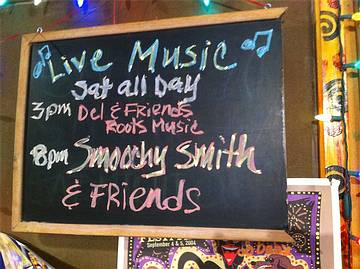 Live Music
Sat all Day
3pm Del & Friends
Roots Music
8pm Smoochy Smith
& Friends
September 4 & 5, 2004